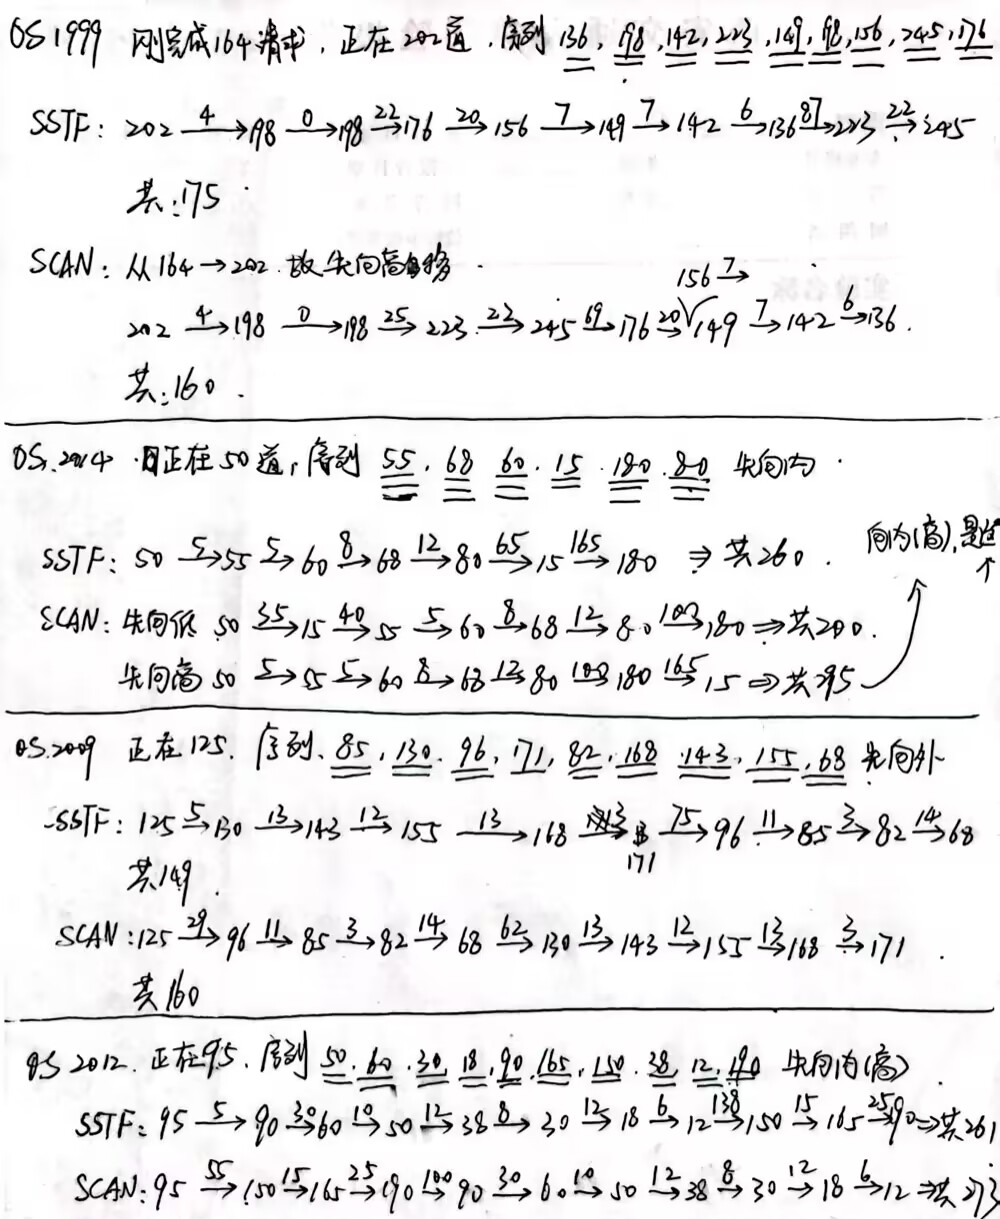 OS 1999 刚完成164请求，正在202道，序列 136，198，142，223，149，98，156，245，176
SSTF: 202 —4→ 198 —0→ 198 —22→ 176 —20→ 156 —7→ 149 —7→ 142 —6→ 136 —87→ 223 —22→ 245
共:175
SCAN: 从164→202 故先向高移
156 —7→
202 —4→ 198 —0→ 198 —25→ 223 —22→ 245 —69→ 176 —20→ 149 —7→ 142 —6→ 136.
共:160.
OS.2014 正在50道，序列 55. 68 60. 15. 180. 80 先向内.
SSTF: 50 —5→ 55 —5→ 60 —8→ 68 —12→ 80 —65→ 15 —165→ 180 ⇒ 共260. 向内(高),是这
SCAN: 先向低 50 —35→ 15 —40→ 55 —5→ 60 —8→ 68 —12→ 80 —100→ 180 ⇒ 共200.
先向高 50 —5→ 55 —5→ 60 —8→ 68 —12→ 80 —100→ 180 —165→ 15 ⇒ 共295
OS.2009 正在125. 序列. 85, 130. 96, 171, 82, 168 .143, 155, 68 先向外
SSTF: 125 —5→ 130 —13→ 143 —12→ 155 —13→ 168 —3→ 171 —75→ 96 —11→ 85 —3→ 82 —14→ 68
共149.
SCAN: 125 —29→ 96 —11→ 85 —3→ 82 —14→ 68 —62→ 130 —13→ 143 —12→ 155 —13→ 168 —3→ 171.
共160
OS 2012. 正在95. 序列 50. 60. 30, 18, 90. 165, 150. 38, 12, 190 先向内(高).
SSTF: 95 —5→ 90 —30→ 60 —10→ 50 —12→ 38 —8→ 30 —12→ 18 —6→ 12 —138→ 150 —15→ 165 —25→ 190 ⇒ 共261
SCAN: 95 —55→ 150 —15→ 165 —25→ 190 —100→ 90 —30→ 60 —10→ 50 —12→ 38 —8→ 30 —12→ 18 —6→ 12 ⇒ 共273